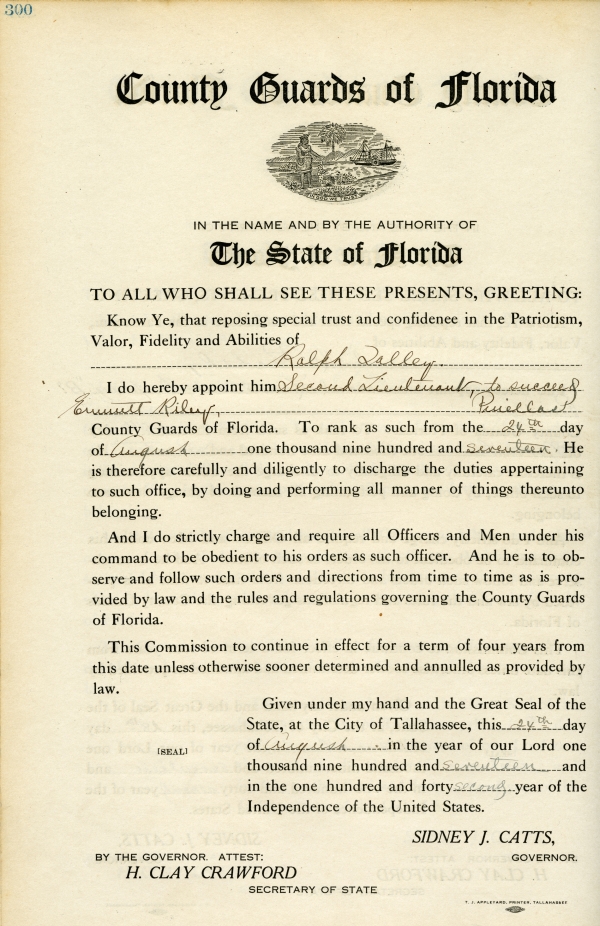 300
County Guards of Florida
IN GOD WE TRUST
IN THE NAME AND BY THE AUTHORITY OF
The State of Florida
TO ALL WHO SHALL SEE THESE PRESENTS, GREETING:
Know Ye, that reposing special trust and confidenee in the Patriotism,
Valor, Fidelity and Abilities of
Ralph Talley
I do hereby appoint him Second Lieutenant, to succeed
Emmett Riley, Pinellas
County Guards of Florida. To rank as such from the 24th day
of August one thousand nine hundred and seventeen. He
is therefore carefully and diligently to discharge the duties appertaining
to such office, by doing and performing all manner of things thereunto
belonging.
And I do strictly charge and require all Officers and Men under his
command to be obedient to his orders as such officer. And he is to ob-
serve and follow such orders and directions from time to time as is pro-
vided by law and the rules and regulations governing the County Guards
of Florida.
This Commission to continue in effect for a term of four years from
this date unless otherwise sooner determined and annulled as provided by
law.
Given under my hand and the Great Seal of the
State, at the City of Tallahassee, this 24th day
[SEAL] of August in the year of our Lord one
thousand nine hundred and seventeen and
in the one hundred and forty second year of the
Independence of the United States.
SIDNEY J. CATTS,
BY THE GOVERNOR. ATTEST: GOVERNOR.
H. CLAY CRAWFORD
SECRETARY OF STATE
T. J. APPLEYARD, PRINTER, TALLAHASSEE